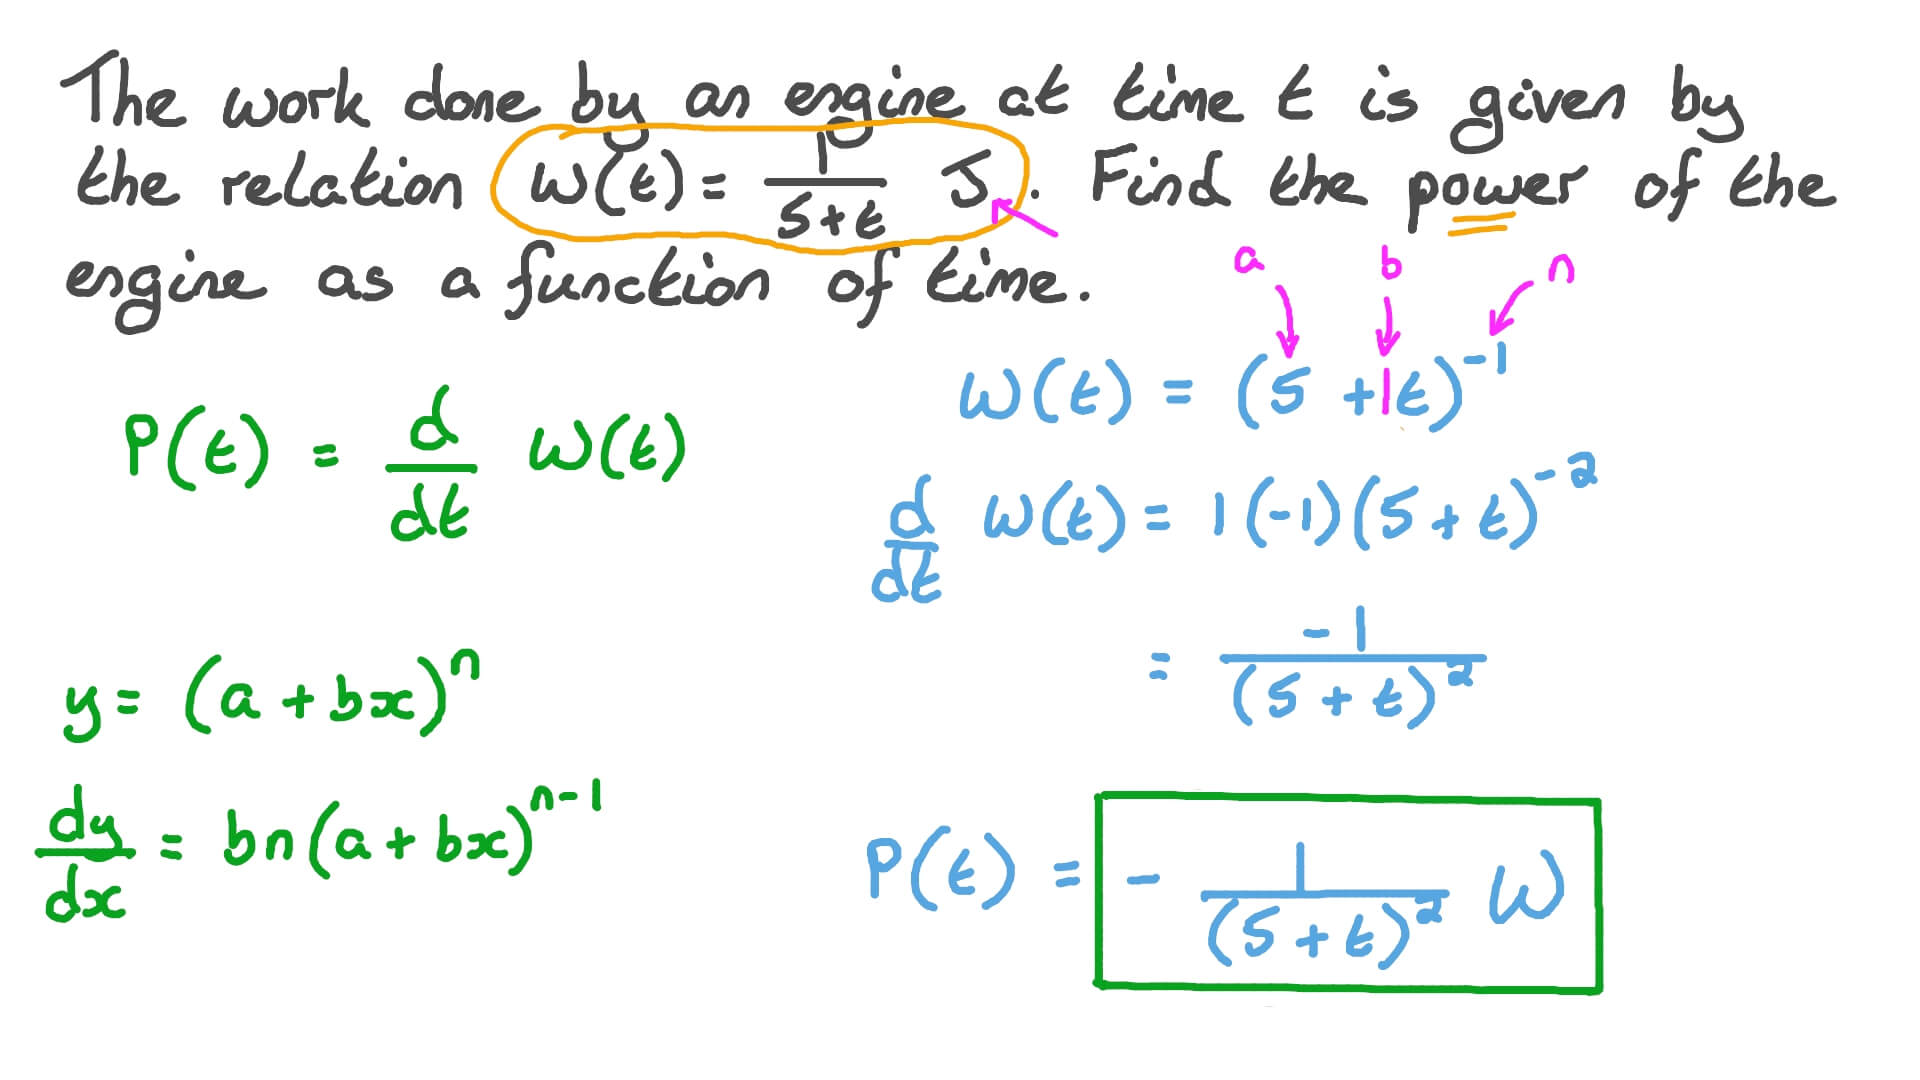 The work done by an engine at time t is given by
the relation W(t) = 1/(5+t) J. Find the power of the
engine as a function of time.
a b n
W(t) = (5 + 1t)^-1
P(t) = d/dt W(t)
d/dt W(t) = 1(-1)(5 + t)^-2
= -1/(5 + t)^2
y = (a + bx)^n
dy/dx = bn(a + bx)^n-1
P(t) = - 1/(5 + t)^2 W